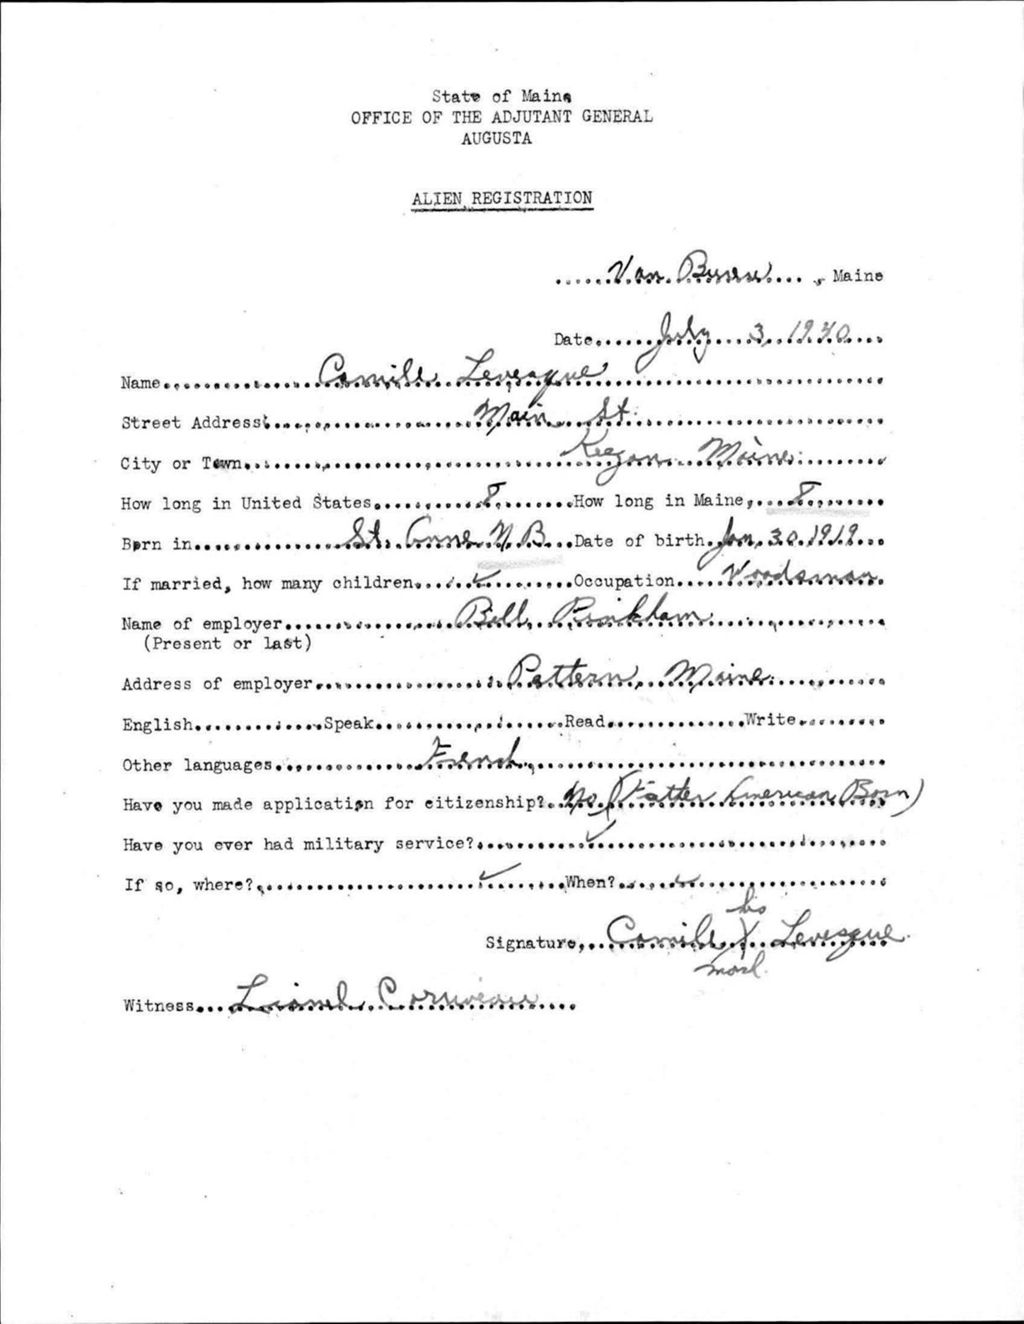 State of Maine
OFFICE OF THE ADJUTANT GENERAL
AUGUSTA
ALIEN REGISTRATION
Van Buren, Maine
Date July 3, 1940
Name Camille Levesque
Street Address Main St.
City or Town Keegan Maine
How long in United States 8 How long in Maine 8
Born in St. Anne N.B. Date of birth Jan. 30, 1919
If married, how many children ✓ Occupation Woodsman
Name of employer Bill
(Present or last)
Address of employer Pattern, Maine
English Speak Read Write
Other languages French
Have you made application for citizenship? No (Father American Born)
Have you ever had military service? ✓
If so, where? ✓ When? ✓
his
Signature Camille X Levesque
mark
Witness Lionel